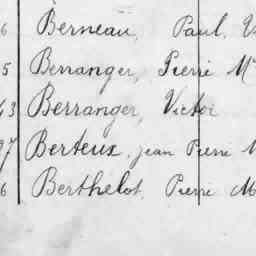 6 Berneau, Paul, V
5 Berranger, Pierre M
43 Berranger, Victor
97 Berteux, jean Pierre M
6 Berthelot, Pierre M